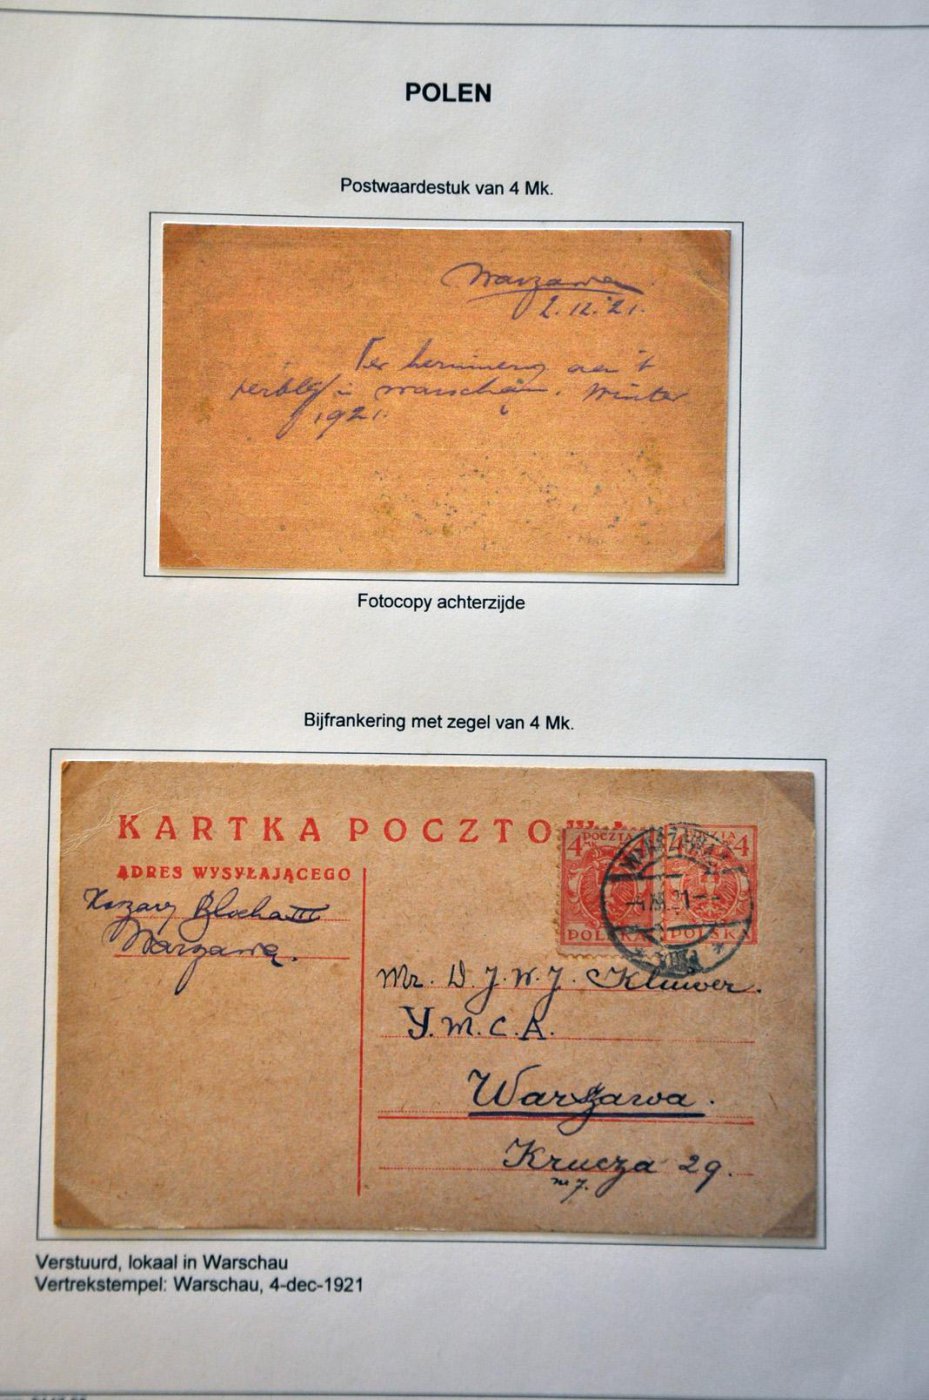 POLEN
Postwaardestuk van 4 Mk.
Warzawa
2.12.'21.
Ter herinnering aan 't
verblijf in Warschau. Winter
1921.
Fotocopy achterzijde
Bijfrankering met zegel van 4 Mk.
KARTKA POCZTOWA
ADRES WYSYŁAJĄCEGO
4 POCZTA 4
MK
POLSKA
POCZTA 4
POLSKA
WARSZAWA
-4 XII 21-
Koszary Blocha III
Warzawa.
Mr. D. J. W. J. Kluwer.
Y.M.C.A.
Warszawa.
Krucza 29.
m 7.
Verstuurd, lokaal in Warschau
Vertrekstempel: Warschau, 4-dec-1921